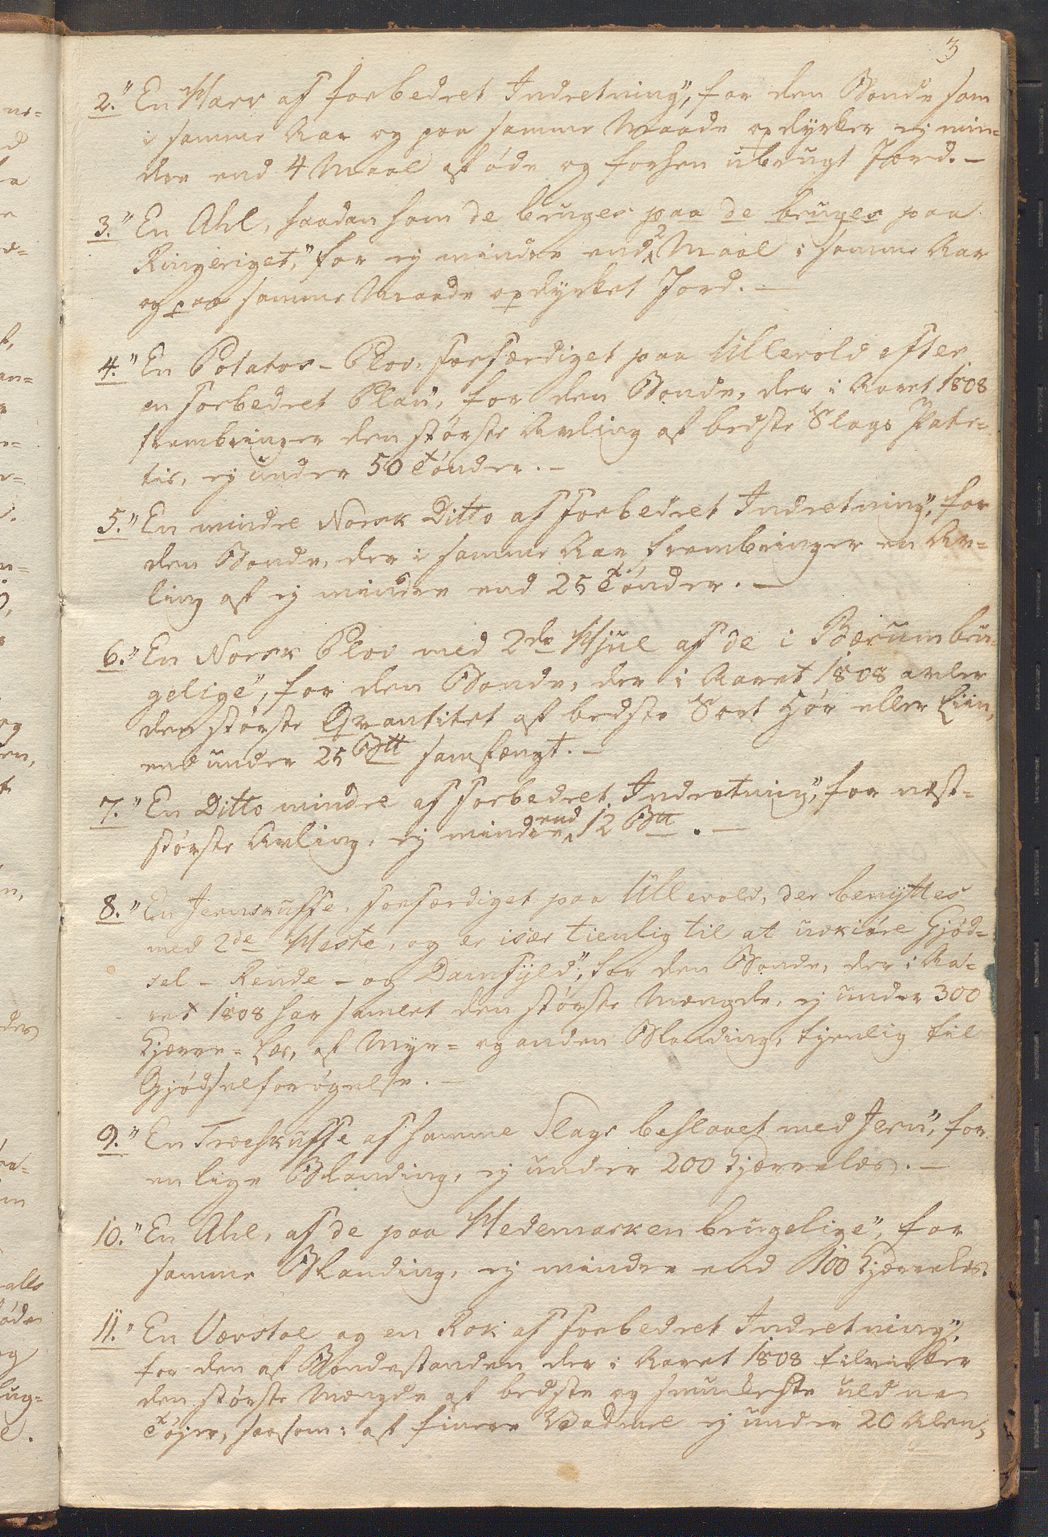 3
2." En Harv af forbedret Indretning", for den Bonde som
i samme Aar og paa samme Maade opdyrker ej min-
dre end 4 Maal af øde og forhen ubrugt Jord. –
3." En Ahl, saadan som de bruges paa de bruges paa
Ringeriget," for ej mindre end 2 Maal i samme Aar
og paa samme Maade opdyrket Jord. –
4." En Potatos-Plov, forfærdiget paa Ullevold efter
en forbedret Plan", for den Bonde, der i Aaret 1808
frembringer den største Avling af bedste Slags Pote-
tis, ej under 50 Tønder. –
5." En mindre Norsk Ditto af forbedret Indretning", for
den Bonde, der i samme Aar frembringer en Av-
ling af ej mindre end 25 Tønder. –
6." En Norsk Plov med 2de Hjul af de i Bærum bru-
gelige", for den Bonde, der i Aaret 1808 avler
den største Qvantitet af bedste Sort Hør eller Liin,
end under 25 B℔ samfængt. –
7." En Ditto mindre af forbedret Indretning", for næst-
største Avling, ej mindre end 12 B℔. –
8." En Jernskuffe, forfærdiget paa Ullevold, der benyttes
med 2de Heste, og er især tienlig til at udkiøre Gjød-
sel- Rende- og Damfyld", for den Bonde, der i Aa-
ret 1808 har samlet den største Mængde, ej under 300
Kjærre-Læs, af Myr- og anden Blanding, tjenlig til
Gjødselforøgelse. –
9." En Træskuffe af samme Slags beslaaet med Jern", for
en lige Blanding, ej under 200 Kjærrelæs. –
10." En Ahl, af de paa Hedemarken brugelige", for
samme Blanding, ej mindre end 100 Kjærrelæs.
11." En Vævstoel og en Rok af forbedret Indretning",
for den af Bondestanden der i Aaret 1808 tilvirker
den største Mængde af bedste og smukkeste uldne
Tøjer, saasom: af finere Vadmel ej under 20 Alen,